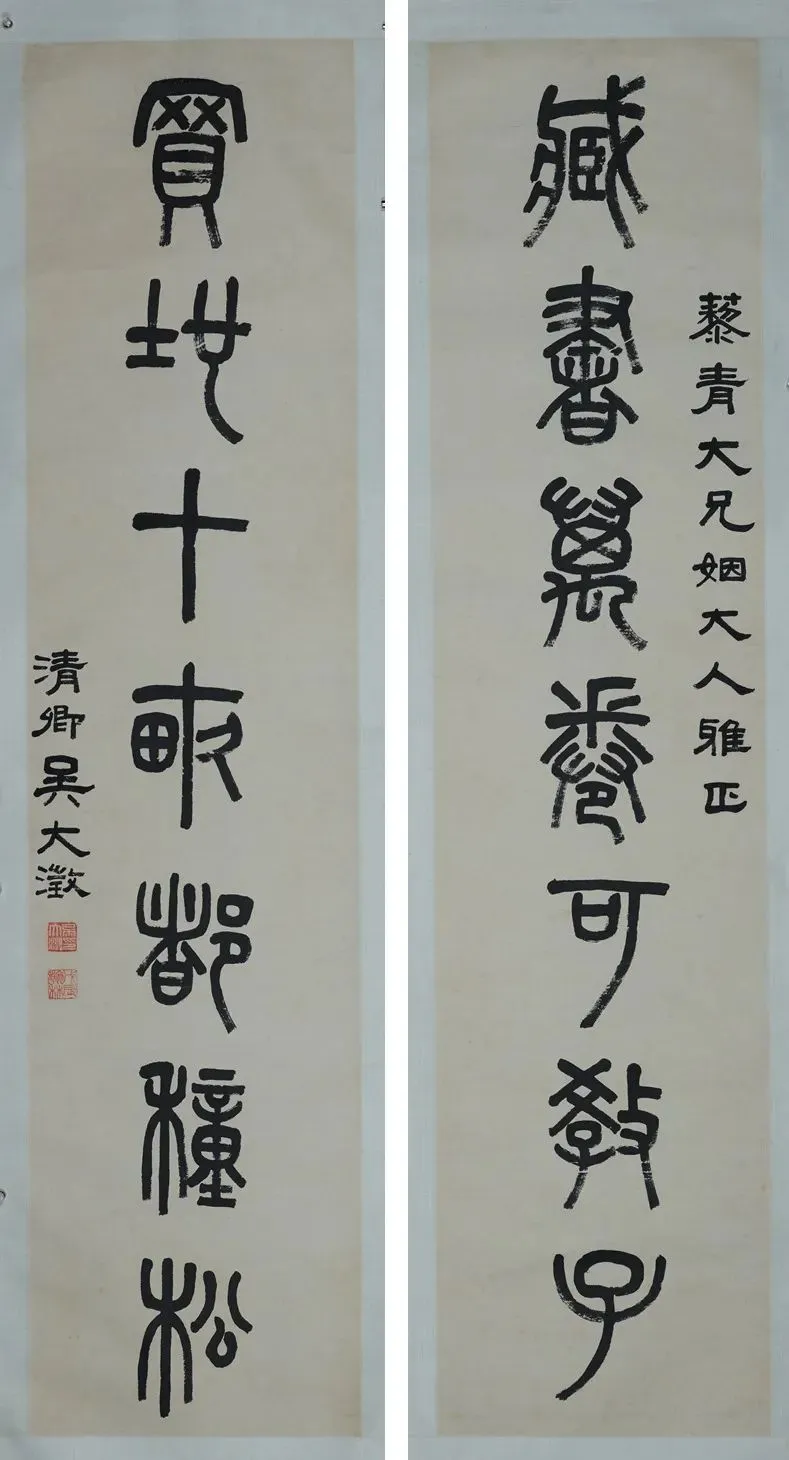 藜青大兄姻大人雅正
藏書萬卷可教子
買地十畝都種松
清卿吳大澂